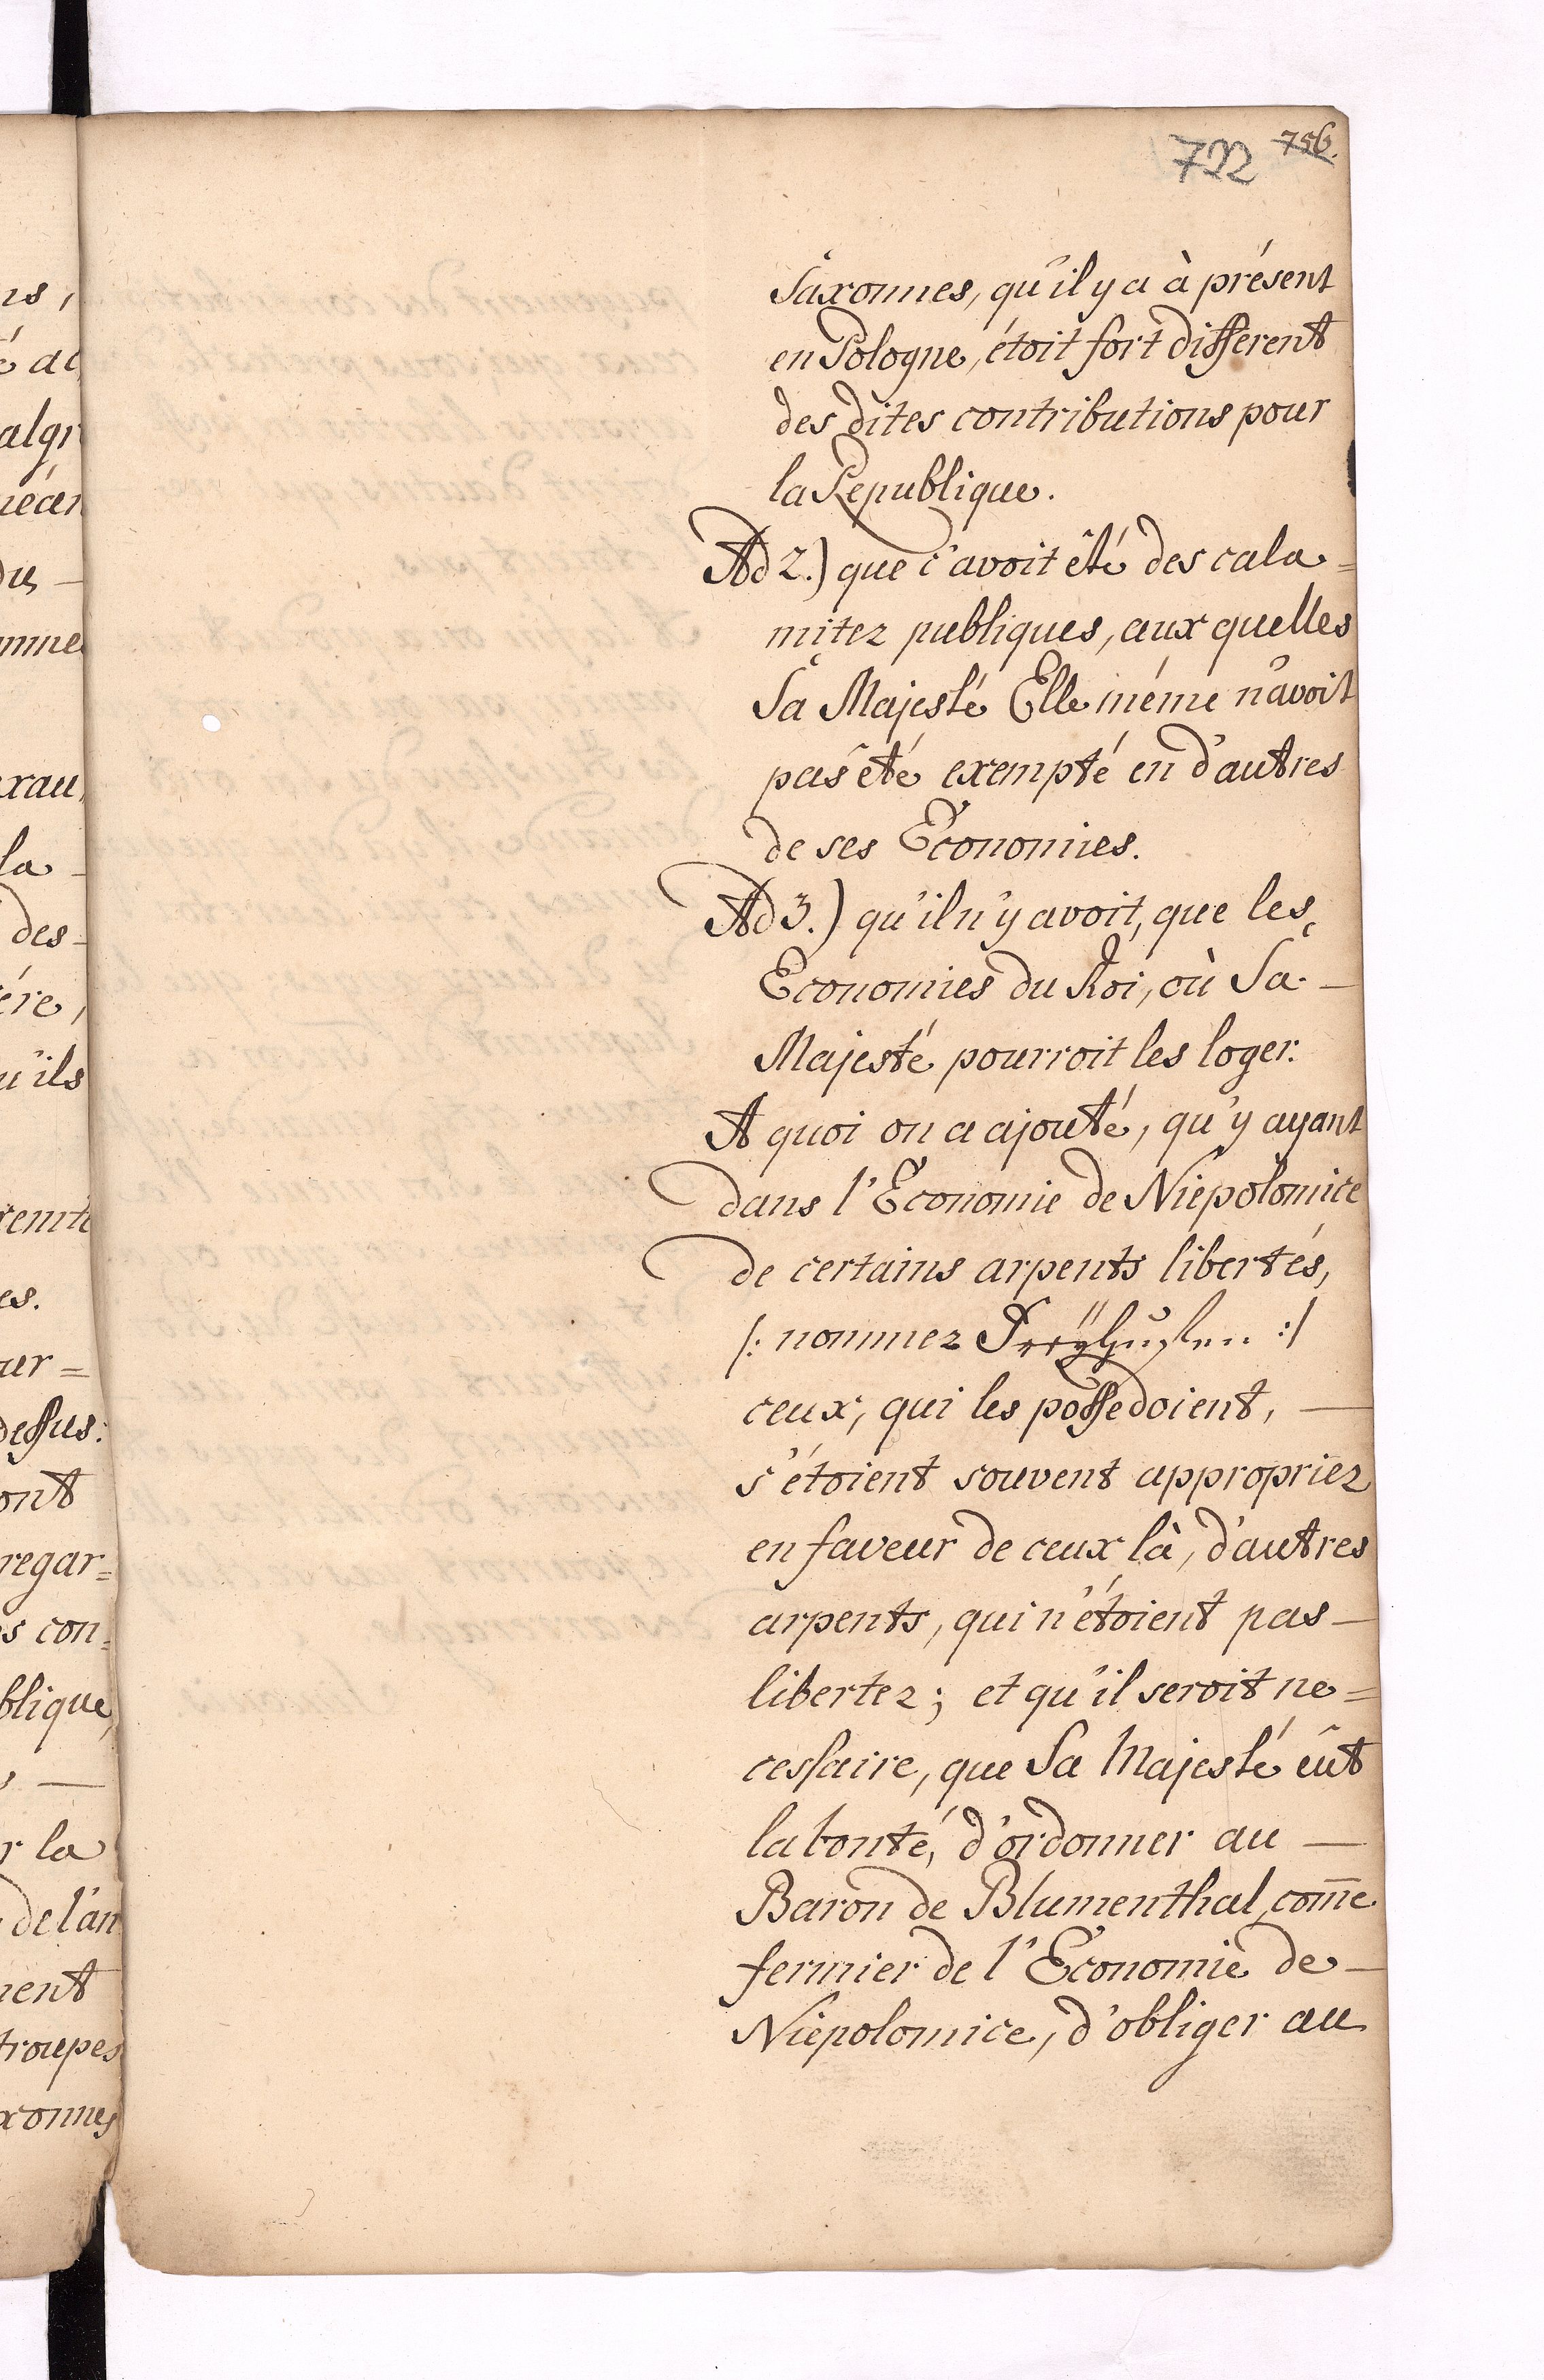 722 756.
Saxonnes, qu'il y a à présent
en Pologne, étoit fort different
des dites contributions pour
la Republique.
Ad 2.) que c'avoit été des cala=
mitez publiques, aux quelles
Sa Majesté Elle méme n'avoit
pas été exempté en d'autres
de ses Economies.
Ad 3.) qu'il n'y avoit, que les
Economies du Roi, où Sa —
Majesté pourroit les loger.
A quoi on a ajouté, qu'y ayant
dans l'Economie de Niepolomice
de certains arpents libertés,
/: nommez Freÿhufen :/
ceux, qui les possedoient, —
s'étoient souvent appropriez
en faveur de ceux là, d'autres
arpents, qui n'étoient pas —
libertez; et qu'il seroit ne=
cessaire, que Sa Majesté eût
la bonté, d'ordonner au —
Baron de Blumenthal, com̄e
fermier de l'Economie de —
Niepolomice, d'obliger au